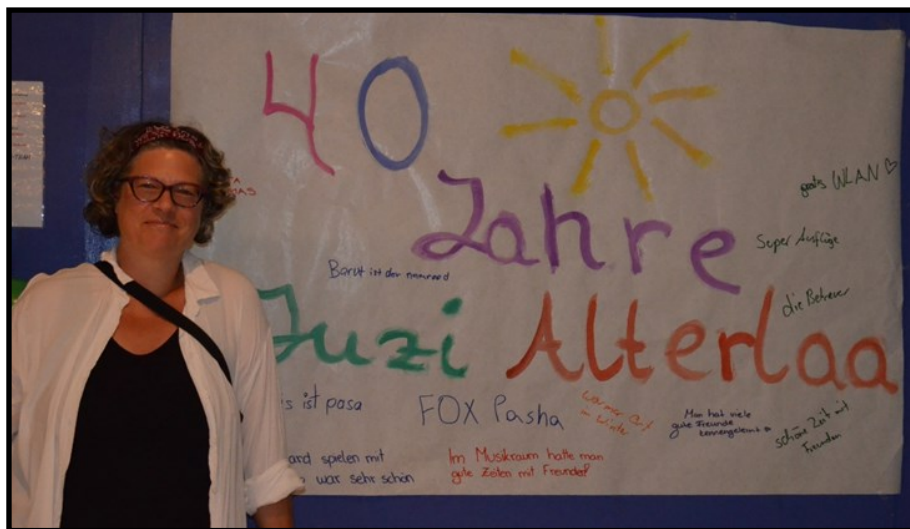 40
Jahre
Juzi Alterlaa
gratis WLAN
Super Ausflüge
die Betreuer
Barut ist der
is ist pasa
FOX Pasha
warmer Ort
im Winter
Man hat viele
gute Freunde
kennengelernt
schöne Zeit mit
Freunden
and spielen mit
war sehr schön
Im Musikraum hatte man
gute Zeiten mit Freunden!